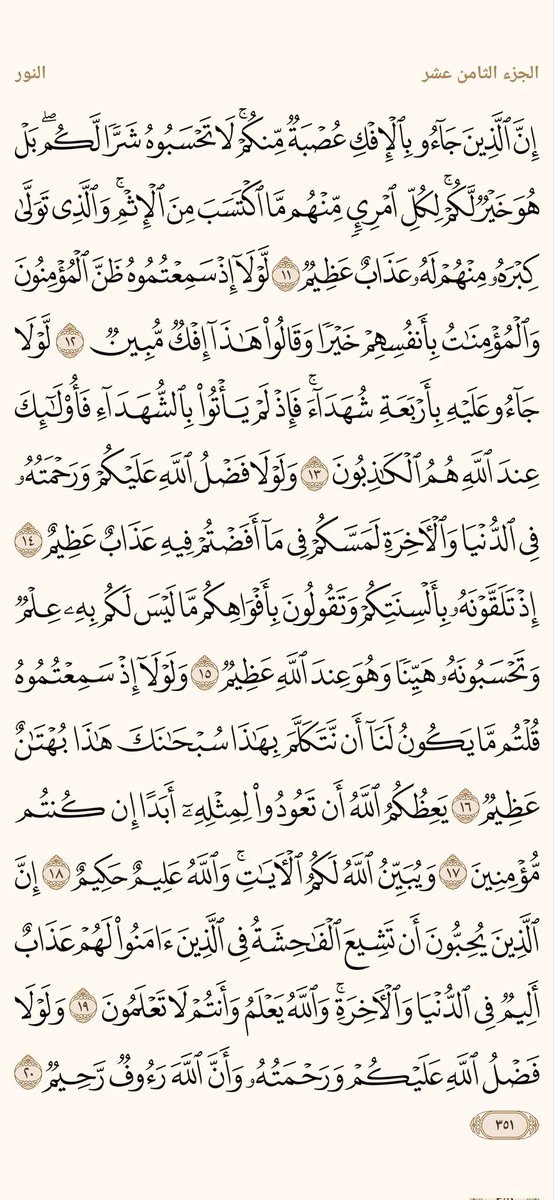 الجزء الثامن عشر
النور
إِنَّ ٱلَّذِينَ جَآءُو بِٱلْإِفْكِ عُصْبَةٌ مِّنكُمْ ۚ لَا تَحْسَبُوهُ شَرًّا لَّكُم ۖ بَلْ
هُوَ خَيْرٌ لَّكُمْ ۚ لِكُلِّ ٱمْرِئٍ مِّنْهُم مَّا ٱكْتَسَبَ مِنَ ٱلْإِثْمِ ۚ وَٱلَّذِى تَوَلَّىٰ
كِبْرَهُۥ مِنْهُمْ لَهُۥ عَذَابٌ عَظِيمٌ ١١ لَّوْلَآ إِذْ سَمِعْتُمُوهُ ظَنَّ ٱلْمُؤْمِنُونَ
وَٱلْمُؤْمِنَٰتُ بِأَنفُسِهِمْ خَيْرًا وَقَالُوا۟ هَٰذَآ إِفْكٌ مُّبِينٌ ١٢ لَّوْلَا
جَآءُو عَلَيْهِ بِأَرْبَعَةِ شُهَدَآءَ ۚ فَإِذْ لَمْ يَأْتُوا۟ بِٱلشُّهَدَآءِ فَأُو۟لَٰٓئِكَ
عِندَ ٱللَّهِ هُمُ ٱلْكَٰذِبُونَ ١٣ وَلَوْلَا فَضْلُ ٱللَّهِ عَلَيْكُمْ وَرَحْمَتُهُۥ
فِى ٱلدُّنْيَا وَٱلْءَاخِرَةِ لَمَسَّكُمْ فِى مَآ أَفَضْتُمْ فِيهِ عَذَابٌ عَظِيمٌ ١٤
إِذْ تَلَقَّوْنَهُۥ بِأَلْسِنَتِكُمْ وَتَقُولُونَ بِأَفْوَاهِكُم مَّا لَيْسَ لَكُم بِهِۦ عِلْمٌ
وَتَحْسَبُونَهُۥ هَيِّنًا وَهُوَ عِندَ ٱللَّهِ عَظِيمٌ ١٥ وَلَوْلَآ إِذْ سَمِعْتُمُوهُ
قُلْتُم مَّا يَكُونُ لَنَآ أَن نَّتَكَلَّمَ بِهَٰذَا سُبْحَٰنَكَ هَٰذَا بُهْتَٰنٌ
عَظِيمٌ ١٦ يَعِظُكُمُ ٱللَّهُ أَن تَعُودُوا۟ لِمِثْلِهِۦٓ أَبَدًا إِن كُنتُم
مُّؤْمِنِينَ ١٧ وَيُبَيِّنُ ٱللَّهُ لَكُمُ ٱلْءَايَٰتِ ۚ وَٱللَّهُ عَلِيمٌ حَكِيمٌ ١٨ إِنَّ
ٱلَّذِينَ يُحِبُّونَ أَن تَشِيعَ ٱلْفَٰحِشَةُ فِى ٱلَّذِينَ ءَامَنُوا۟ لَهُمْ عَذَابٌ
أَلِيمٌ فِى ٱلدُّنْيَا وَٱلْءَاخِرَةِ ۚ وَٱللَّهُ يَعْلَمُ وَأَنتُمْ لَا تَعْلَمُونَ ١٩ وَلَوْلَا
فَضْلُ ٱللَّهِ عَلَيْكُمْ وَرَحْمَتُهُۥ وَأَنَّ ٱللَّهَ رَءُوفٌ رَّحِيمٌ ٢٠
٣٥١